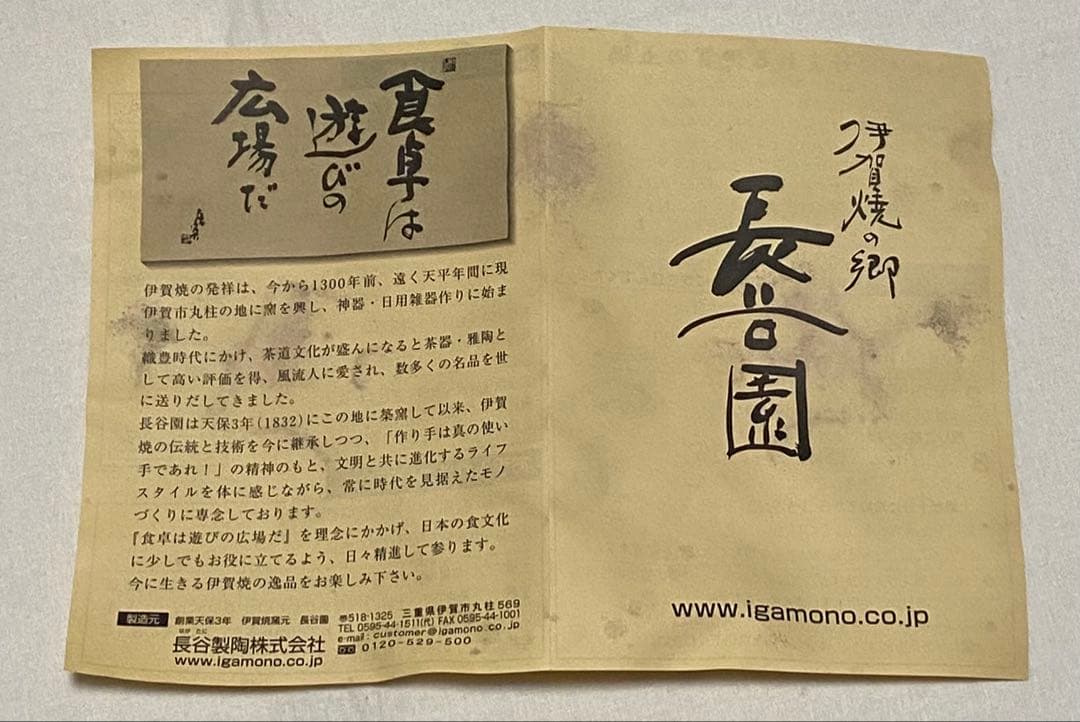 食卓は
遊びの
広場だ
伊賀焼の発祥は、今から1300年前、遠く天平年間に現
伊賀市丸柱の地に窯を興し、神器・日用雑器作りに始ま
りました。
織豊時代にかけ、茶道文化が盛んになると茶器・雅陶と
して高い評価を得、風流人に愛され、数多くの名品を世
に送りだしてきました。
長谷園は天保3年(1832)にこの地に築窯して以来、伊賀
焼の伝統と技術を今に継承しつつ、「作り手は真の使い
手であれ！」の精神のもと、文明と共に進化するライフ
スタイルを体に感じながら、常に時代を見据えたモノ
づくりに専念しております。
『食卓は遊びの広場だ』を理念にかかげ、日本の食文化
に少しでもお役に立てるよう、日々精進して参ります。
今に生きる伊賀焼の逸品をお楽しみ下さい。
製造元 創業天保3年 伊賀焼窯元 長谷園
ながたに
長谷製陶株式会社
www.igamono.co.jp
〒518-1325 三重県伊賀市丸柱569
TEL 0595-44-1511(代) FAX 0595-44-1001
e-mail: customer@igamono.co.jp
0120-529-500
伊賀焼の郷
長谷園
www.igamono.co.jp